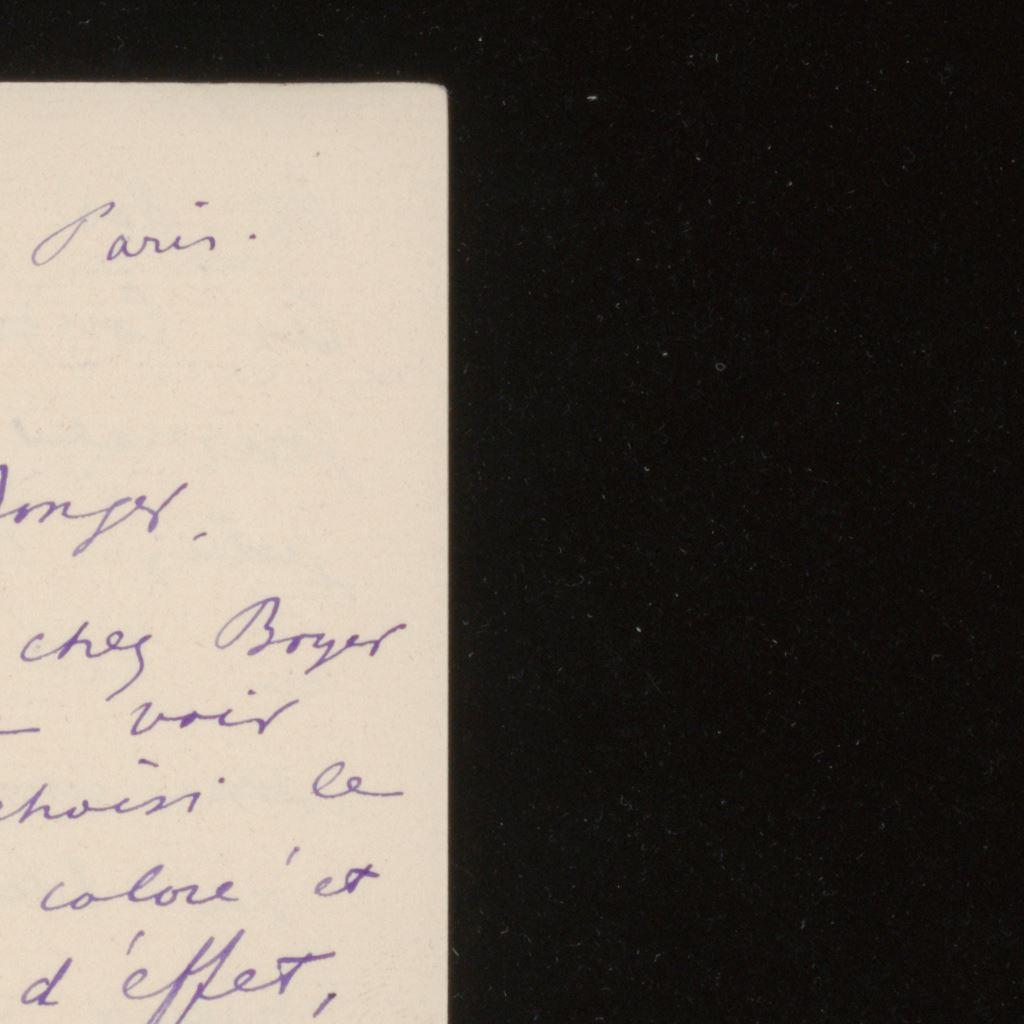 Paris.
Jonger,
chez Boyer
voir
choisi le
coloré et
d'effet,